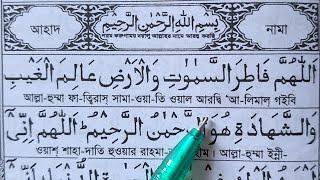 আহাদ بِسْمِ اللهِ الرَّحْمٰنِ الرَّحِيْمِ নামা
পরম করুণাময় দয়ালু আল্লাহর নামে আরম্ভ করছি
اَللّٰهُمَّ فَاطِرَ السَّمٰوٰتِ وَالْاَرْضِ عَالِمَ الْغَيْبِ
আল্লা-হুম্মা ফা-ত্বিরাস্ সামা-ওয়া-তি ওয়াল আরদ্বি 'আ-লিমাল্ গইবি
وَالشَّهَادَةِ هُوَ الرَّحْمٰنُ الرَّحِيْمُ اَللّٰهُمَّ اِنِّىْ
ওয়াশ্ শাহা-দাতি হুওয়ার রাহমা- হীম। আল্লা-হুম্মা ইন্নী-